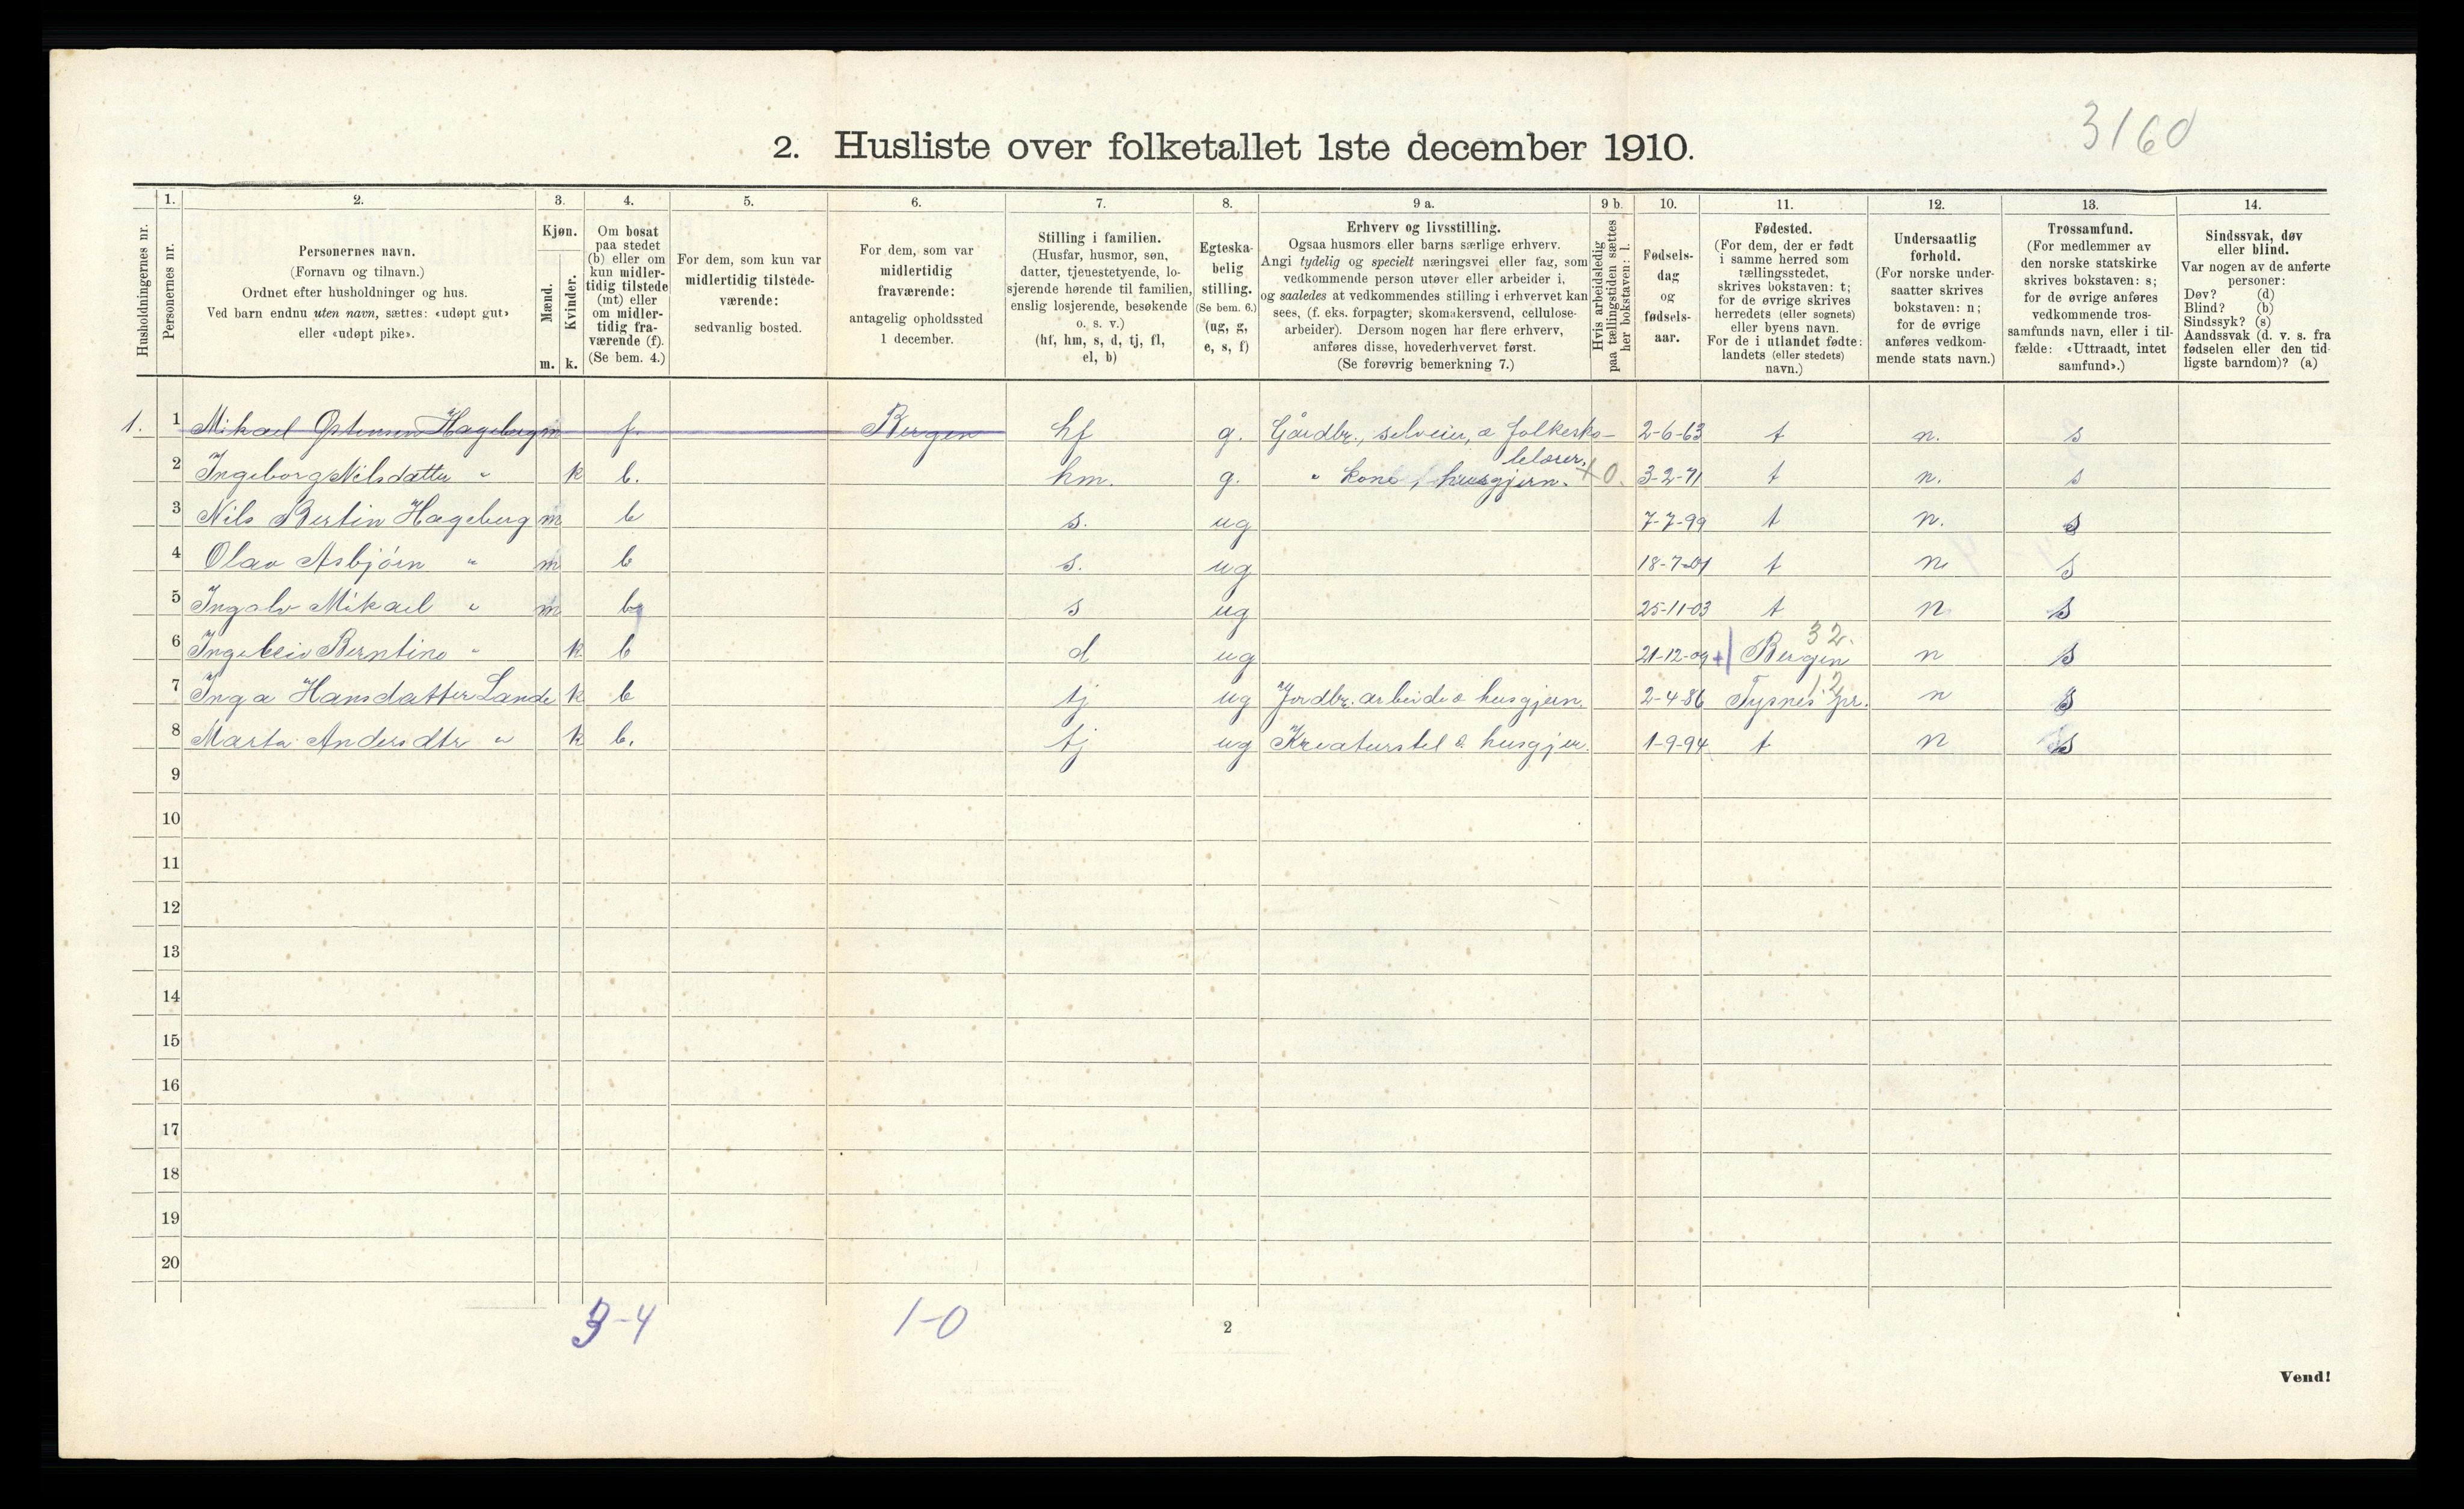 3160
2. Husliste over folketallet 1ste december 1910.
Husholdningernes nr.
1.
Personernes nr.
2.
Personernes navn.
(Fornavn og tilnavn.)
Ordnet efter husholdninger og hus.
Ved barn endnu uten navn, sættes: «udøpt gut»
eller «udøpt pike».
3.
Kjøn.
Mænd.
m.
Kvinder.
k.
4.
Om bosat
paa stedet
(b) eller om
kun midler-
tidig tilstede
(mt) eller
om midler-
tidig fra-
værende (f).
(Se bem. 4.)
5.
For dem, som kun var
midlertidig tilstede-
værende:
sedvanlig bosted.
6.
For dem, som var
midlertidig
fraværende:
antagelig opholdssted
1 december.
7.
Stilling i familien.
(Husfar, husmor, søn,
datter, tjenestetyende, lo-
sjerende hørende til familien,
enslig losjerende, besøkende
o. s. v.)
(hf, hm, s, d, tj, fl,
el, b)
8.
Egteska-
belig
stilling.
(Se bem. 6.)
(ug, g,
e, s, f)
9 a.
Erhverv og livsstilling.
Ogsaa husmors eller barns særlige erhverv.
Angi tydelig og specielt næringsvei eller fag, som
vedkommende person utøver eller arbeider i,
og saaledes at vedkommendes stilling i erhvervet kan
sees, (f. eks. forpagter, skomakersvend, cellulose-
arbeider). Dersom nogen har flere erhverv,
anføres disse, hovederhvervet først.
(Se forøvrig bemerkning 7.)
9 b.
Hvis arbeidsledig
paa tællingstiden sættes
her bokstaven: l.
10.
Fødsels-
dag
og
fødsels-
aar.
11.
Fødested.
(For dem, der er født
i samme herred som
tællingsstedet,
skrives bokstaven: t;
for de øvrige skrives
herredets (eller sognets)
eller byens navn.
For de i utlandet fødte:
landets (eller stedets)
navn.)
12.
Undersaatlig
forhold.
(For norske under-
saatter skrives
bokstaven: n;
for de øvrige
anføres vedkom-
mende stats navn.)
13.
Trossamfund.
(For medlemmer av
den norske statskirke
skrives bokstaven: s;
for de øvrige anføres
vedkommende tros-
samfunds navn, eller i til-
fælde: «Uttraadt, intet
samfund».)
14.
Sindssvak, døv
eller blind.
Var nogen av de anførte
personer:
Døv? (d)
Blind? (b)
Sindssyk? (s)
Aandssvak (d. v. s. fra
fødselen eller den tid-
ligste barndom)? (a)
1. 1 Mikael Hageberg m f. Bergen hf g. Gårdbr., selveier, o folkesko- 2-6-63 t n. s
lelærer.
2 Ingeborg Nilsdatter " k b. hm. g. " kone, husgjern. +0. 3-2-71 t n. s
3 Nils Bertin Hageberg m b s. ug 7-7-99 t n. s
4 Olav Asbjörn " m b s. ug 18-7-01 t n s
5 Ingolv Mikael " m b s ug 25-11-03 t n s
32.
6 Berntine " k b d ug 21-12-09 Bergen n s
12
7 Inga Hansdatter Lande k b tj ug Jordbr. arbeide o husgjern. 2-4-86 Tysnes pr. n s
8 Marta Andersdtr " k b. tj ug Kreaturstel o husgjer. 1-9-94 t n s
9
10
11
12
13
14
15
16
17
18
19
20
3-4 1-0
2
Vend!